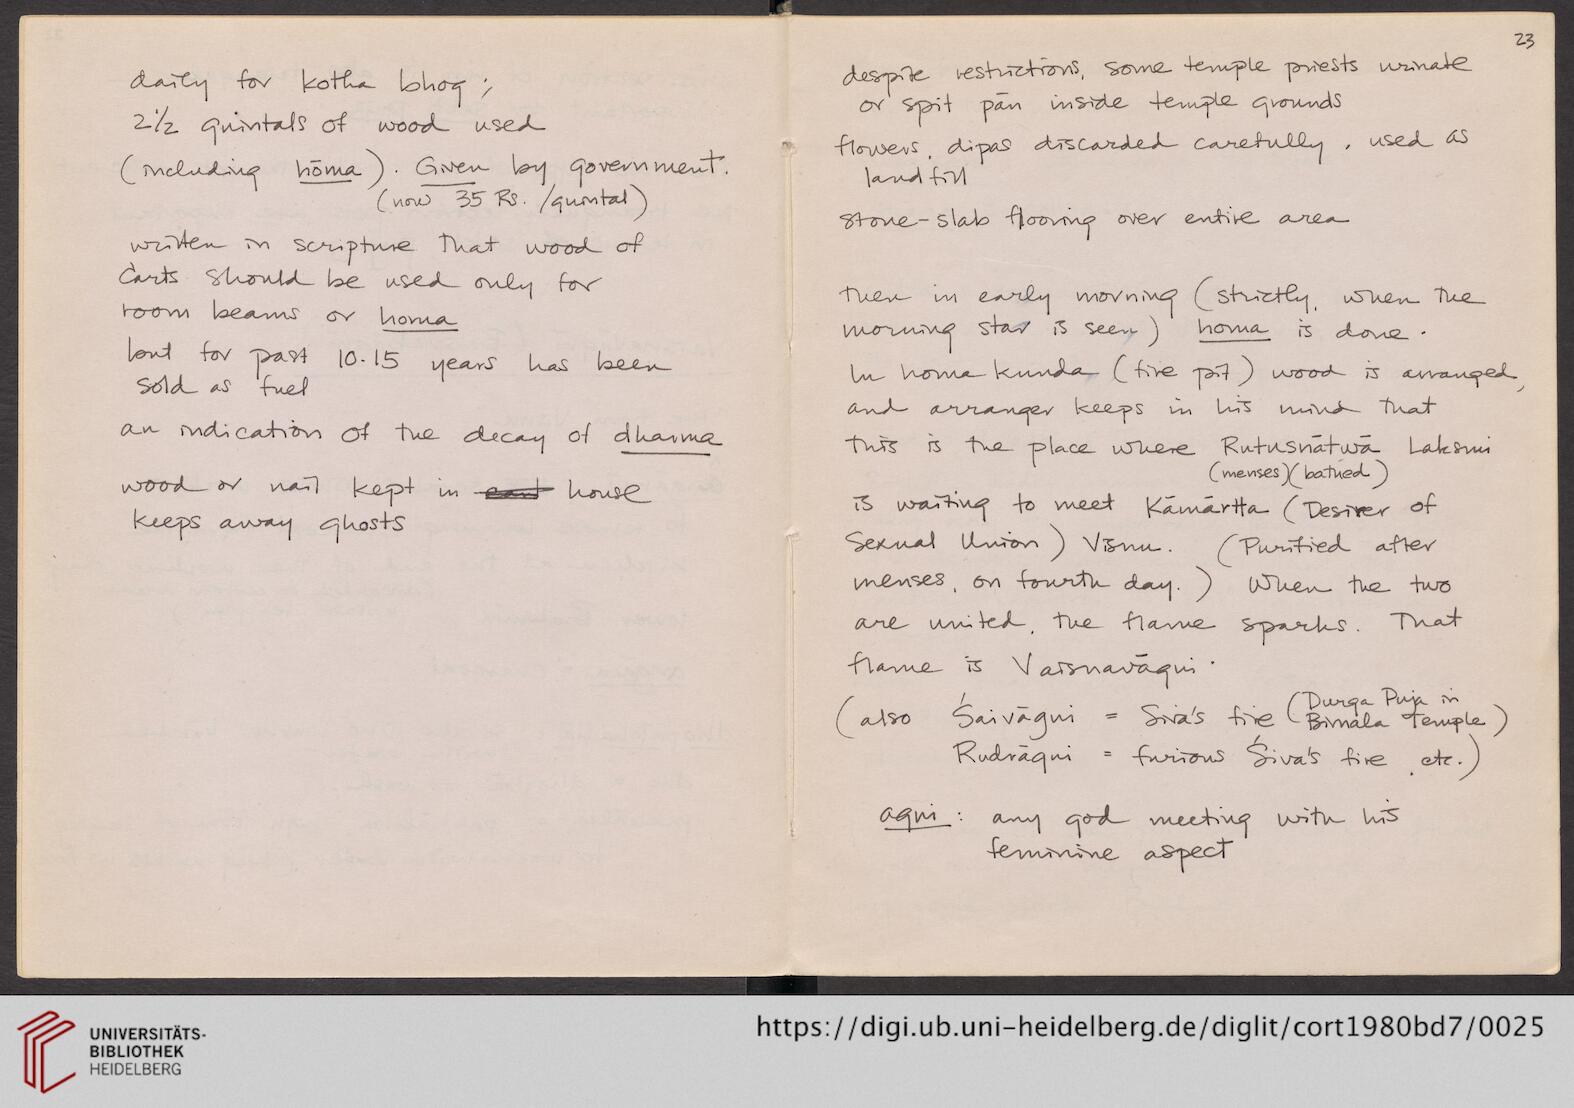 daily for kotha bhog ;
2 1/2 quintals of wood used
(including hōma). Given by government.
(now 35 Rs. /quintal)
written in scripture that wood of
carts should be used only for
room beams or homa
but for past 10-15 years has been
sold as fuel
an indication of the decay of dharma
wood or nail kept in cart house
keeps away ghosts
23
despite restrictions, some temple priests urinate
or spit pān inside temple grounds
flowers, dipas discarded carefully, used as
landfill
stone-slab flooring over entire area
then in early morning (strictly, when the
morning star is seen) homa is done.
In homa kunda (fire pit) wood is arranged,
and arranger keeps in his mind that
this is the place where Rutusnātwā Laksmi
(menses)(bathed)
is waiting to meet Kāmārtta (Desirer of
Sexual Union) Visnu. (Purified after
menses, on fourth day.) When the two
are united, the flame sparks. That
flame is Vaisnavāgni.
(also Śaivāgni = Siva's fire (Durga Puja in
Bimala Temple)
Rudrāgni = furious Śiva's fire, etc.)
agni: any god meeting with his
feminine aspect
UNIVERSITÄTS-
BIBLIOTHEK
HEIDELBERG
https://digi.ub.uni-heidelberg.de/diglit/cort1980bd7/0025